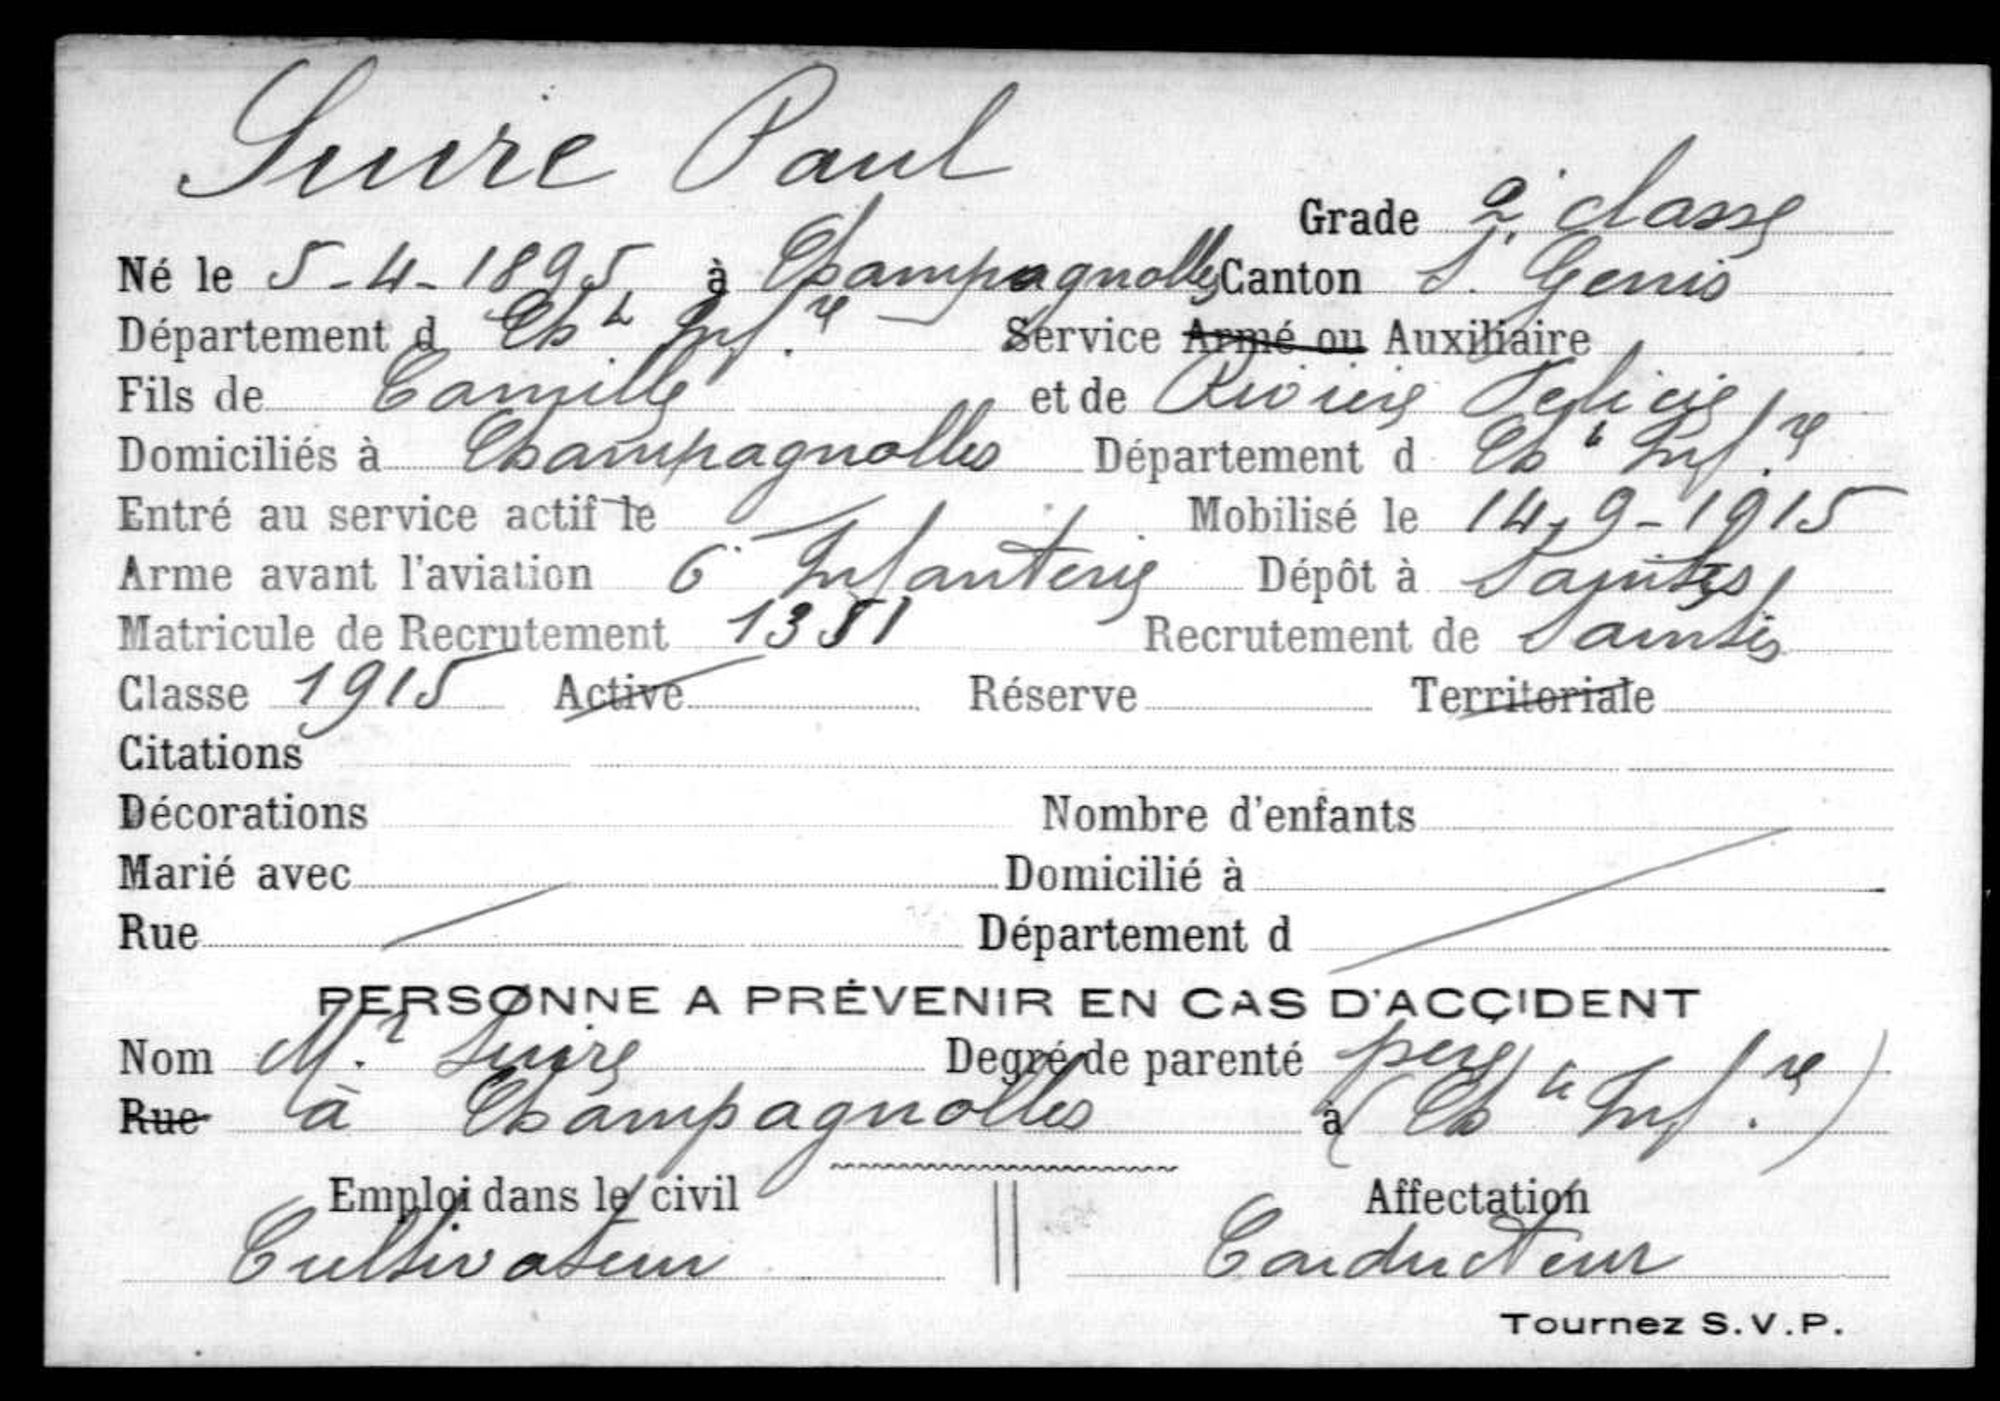 Suire Paul
Grade 2e classe
Né le 5-4-1895 à Champagnolles Canton St Genis
Département d Chte Infre Service Armé ou Auxiliaire
Fils de Camille et de Rivière Félicie
Domiciliés à Champagnolles Département d Chte Infre
Entré au service actif le — Mobilisé le 14-9-1915
Arme avant l'aviation 6e Infanterie Dépôt à Saintes
Matricule de Recrutement 1351 Recrutement de Saintes
Classe 1915 Active Réserve Territoriale
Citations
Décorations Nombre d'enfants
Marié avec Domicilié à
Rue Département d
PERSONNE A PRÉVENIR EN CAS D'ACCIDENT
Nom Mr Suire Degré de parenté père
Rue à Champagnolles à (Chte Infre)
Emploi dans le civil Affectation
Cultivateur Conducteur
Tournez S.V.P.